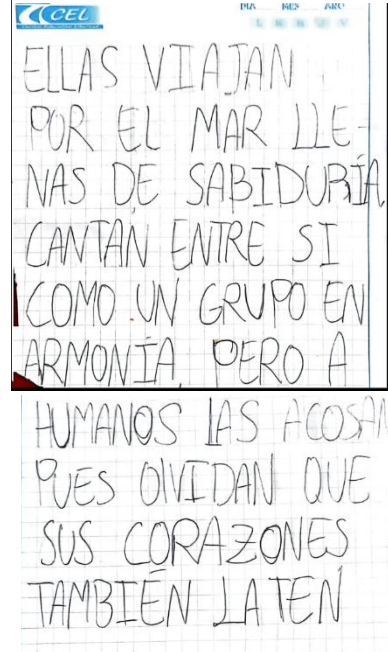 CEL
DIA MES AÑO
L M M J V
ELLAS VIAJAN
POR EL MAR LLE-
NAS DE SABIDURÍA
CANTAN ENTRE SI
COMO UN GRUPO EN
ARMONÍA PERO A
HUMANOS LAS ACOSAN
PUES OLVIDAN QUE
SUS CORAZONES
TAMBIÉN LATEN